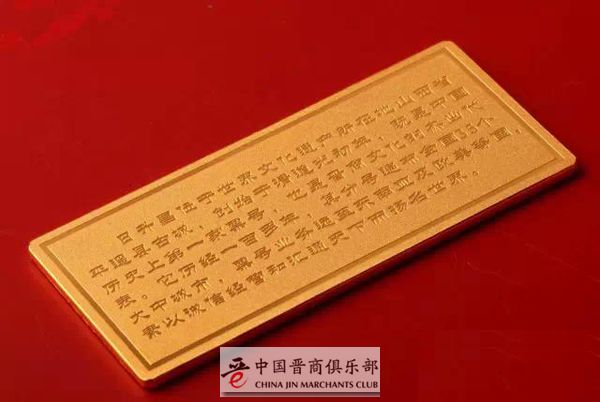 日升昌位于世界文化遗产所在地山西省
平遥县古城，创始于清道光初年，既是中国
历史上第一家票号，也是晋商文化的杰出代
表。它历经一百余年，其分号遍布全国35个
大中城市，票号业务远至东南亚及欧美等国，
素以诚信经营和汇通天下而扬名世界。
晋
中国晋商俱乐部
CHINA JIN MARCHANTS CLUB